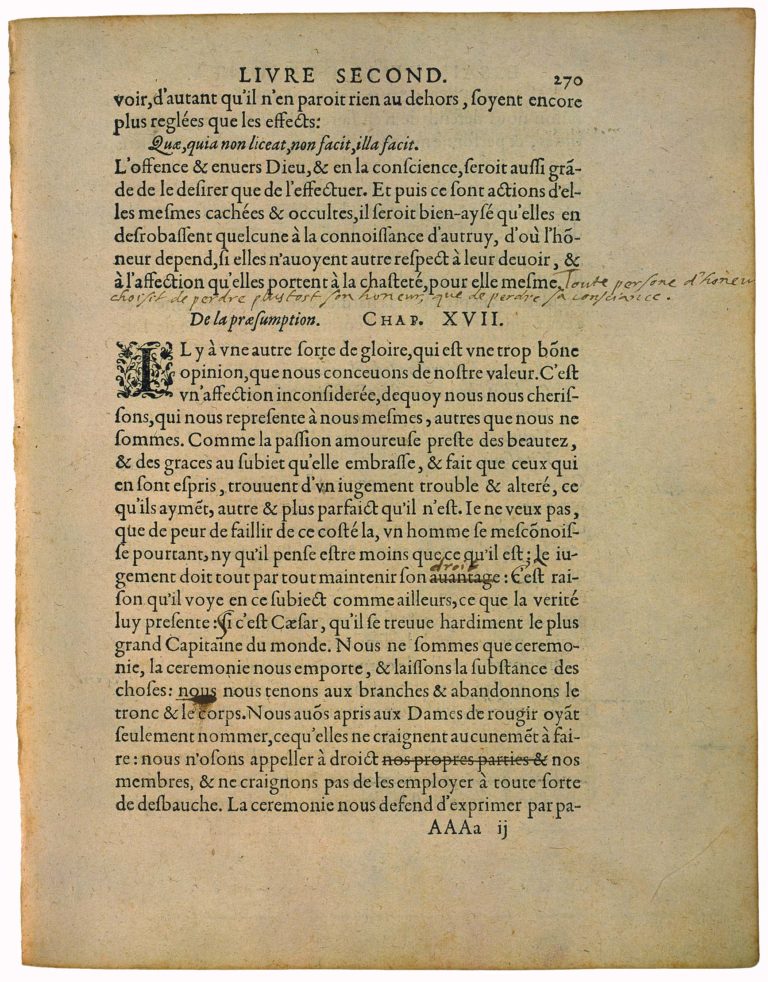 LIVRE SECOND. 270
voir, d'autant qu'il n'en paroit rien au dehors, ſoyent encore
plus reglées que les effects:
Quæ, quia non liceat, non facit, illa facit.
L'offence & enuers Dieu, & en la conſcience, ſeroit auſſi grã-
de de le deſirer que de l'effectuer. Et puis ce ſont actions d'el-
les meſmes cachées & occultes, il ſeroit bien-ayſé qu'elles en
deſrobaſſent quelcune à la connoiſſance d'autruy, d'où l'hõ-
neur depend, ſi elles n'auoyent autre reſpect à leur deuoir, &
à l'affection qu'elles portent à la chaſteté, pour elle meſme. Toute persone d'honeur
choisit de perdre plustost son honeur, que de perdre sa consciance.
De la præſumption. CHAP. XVII.
IL y à vne autre ſorte de gloire, qui eſt vne trop bõne
opinion, que nous conceuons de noſtre valeur. C'eſt
vn'affection inconſiderée, dequoy nous nous cheriſ-
ſons, qui nous repreſente à nous meſmes, autres que nous ne
ſommes. Comme la paſſion amoureuſe preſte des beautez,
& des graces au ſubiet qu'elle embraſſe, & fait que ceux qui
en ſont eſpris, trouuent d'vn iugement trouble & alteré, ce
qu'ils aymẽt, autre & plus parfaict qu'il n'eſt. Ie ne veux pas,
que de peur de faillir de ce coſté la, vn homme ſe meſcõnoiſ-
ſe pourtant, ny qu'il penſe eſtre moins que ce qu'il eſt; le iu-
droit
gement doit tout par tout maintenir ſon auantage: C'eſt rai-
ſon qu'il voye en ce ſubiect comme ailleurs, ce que la verité
luy preſente: Si c'eſt Cæſar, qu'il ſe treuue hardiment le plus
grand Capitaine du monde. Nous ne ſommes que ceremo-
nie, la ceremonie nous emporte, & laiſſons la ſubſtance des
choſes: nous nous tenons aux branches & abandonnons le
tronc & le corps. Nous auõs apris aux Dames de rougir oyãt
ſeulement nommer, ce qu'elles ne craignent aucunemẽt à fai-
re: nous n'oſons appeller à droict nos propres parties & nos
membres, & ne craignons pas de les employer à toute ſorte
de deſbauche. La ceremonie nous defend d'exprimer par pa-
AAAa ij